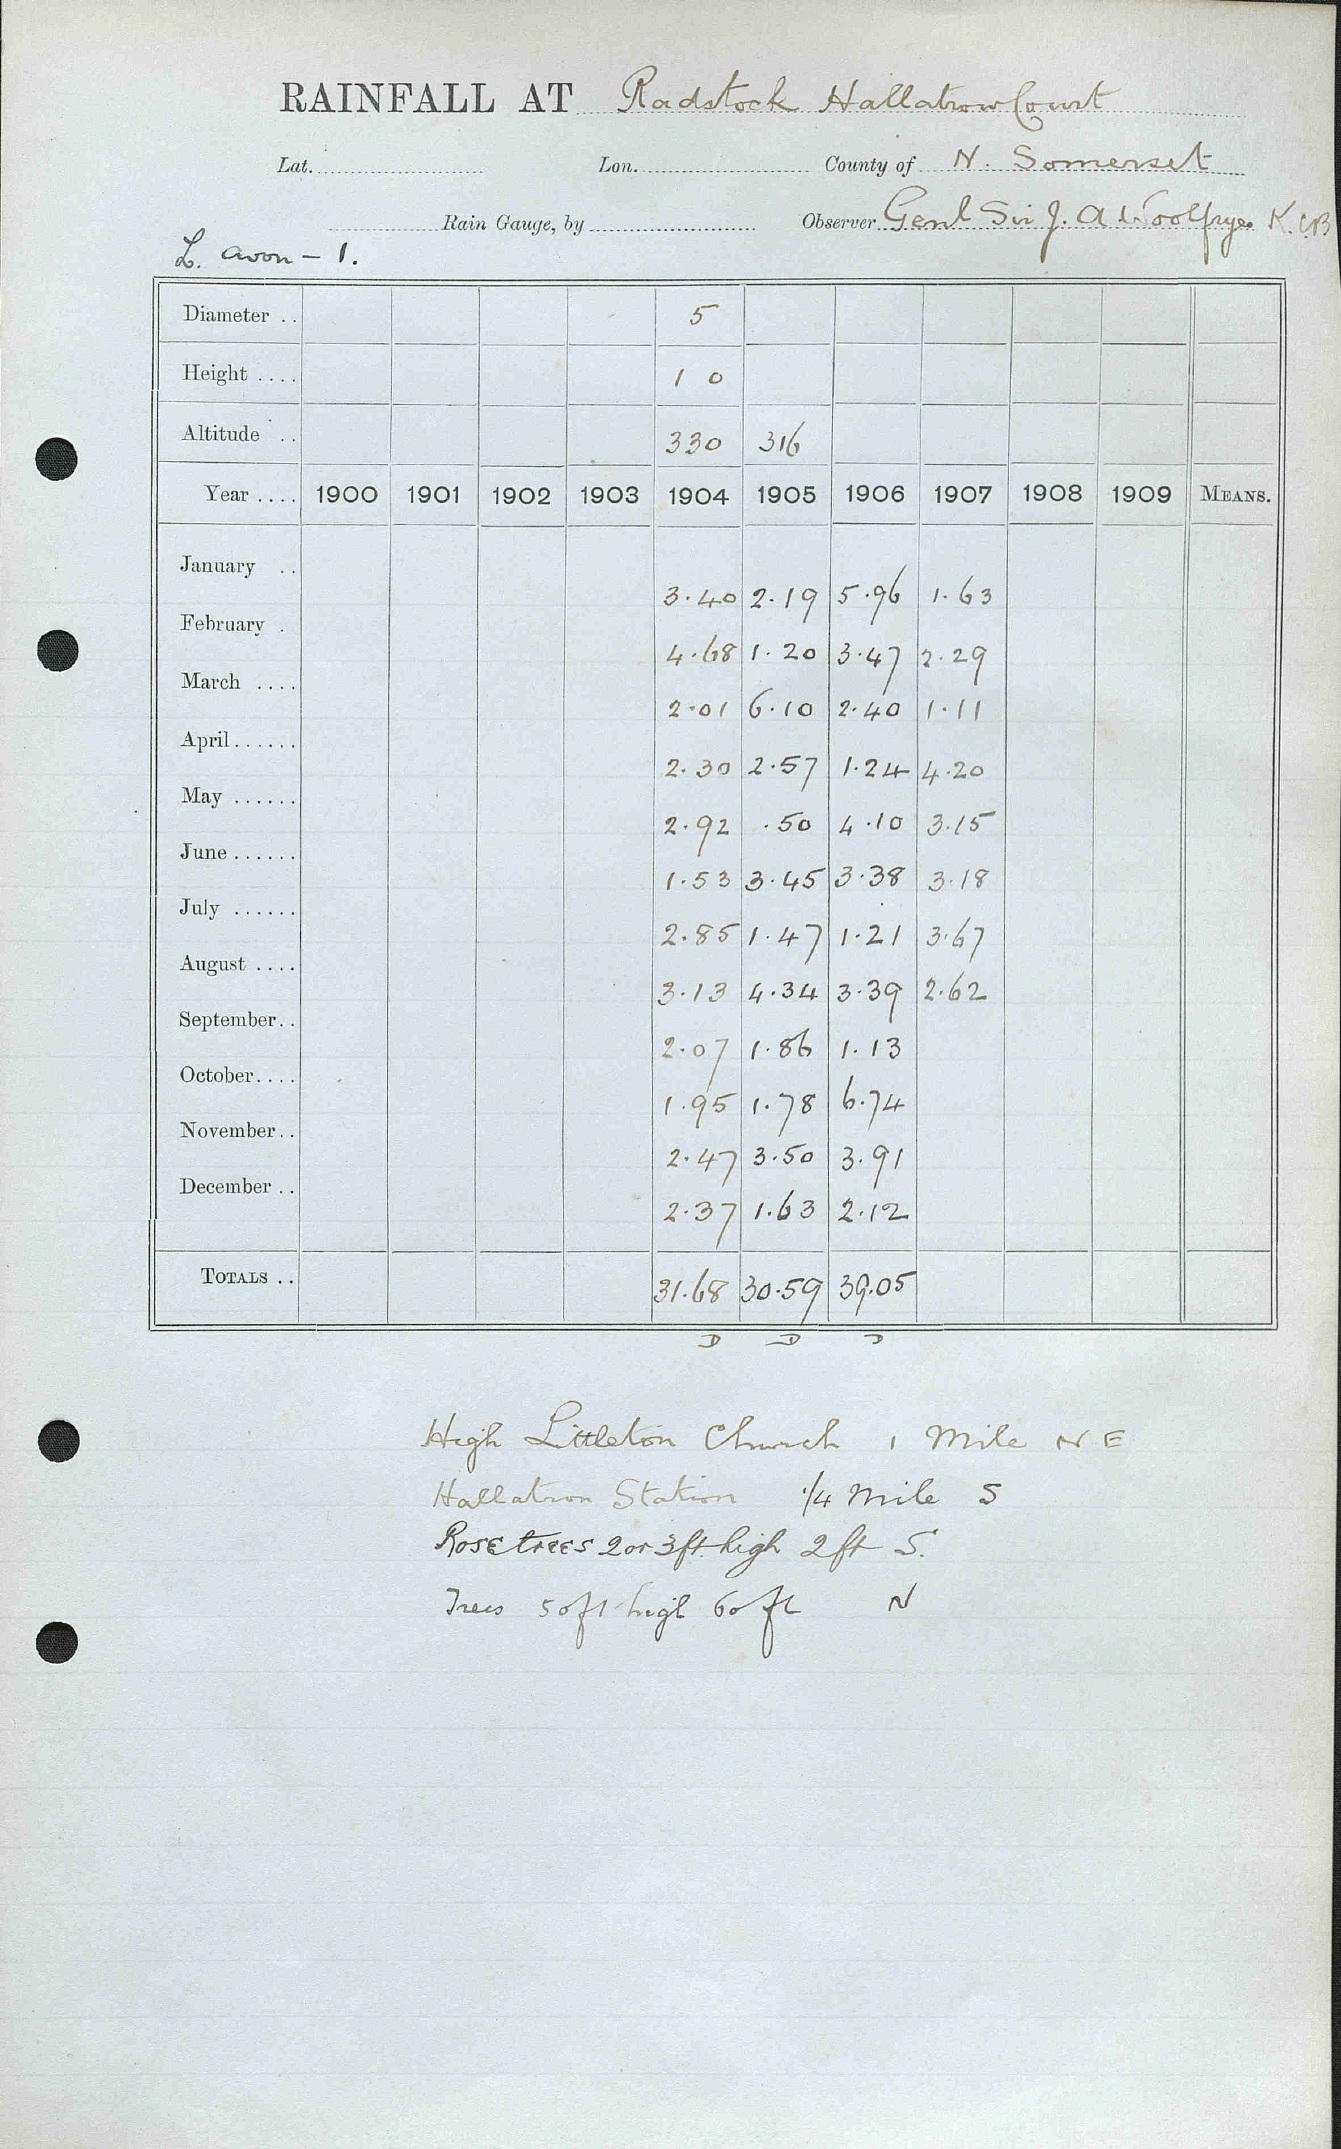 RAINFALL AT Radstock Hallatrow Court
Lat. Lon. County of N. Somerset
Rain Gauge, by Observer Genl Sir J. A Woolfryes K.C.B
L. Avon – 1.
Diameter .. 5
Height .... 1 0
Altitude .. 330 316
Year .... 1900 1901 1902 1903 1904 1905 1906 1907 1908 1909 MEANS.
January .. 3.40 2.19 5.96 1.63
February . 4.68 1.20 3.47 2.29
March .... 2.01 6.10 2.40 1.11
April ...... 2.30 2.57 1.24 4.20
May ...... 2.92 .50 4.10 3.15
June ...... 1.53 3.45 3.38 3.18
July ...... 2.85 1.47 1.21 3.67
August .... 3.13 4.34 3.39 2.62
September .. 2.07 1.86 1.13
October .... 1.95 1.78 6.74
November .. 2.47 3.50 3.91
December .. 2.37 1.63 2.12
TOTALS .. 31.68 30.59 39.05
D D D
High Littleton Church 1 Mile N E
Hallatrow Station 1/4 Mile S
Rose trees 2 or 3 ft. high 2 ft S.
Trees 50 ft high 60 ft N